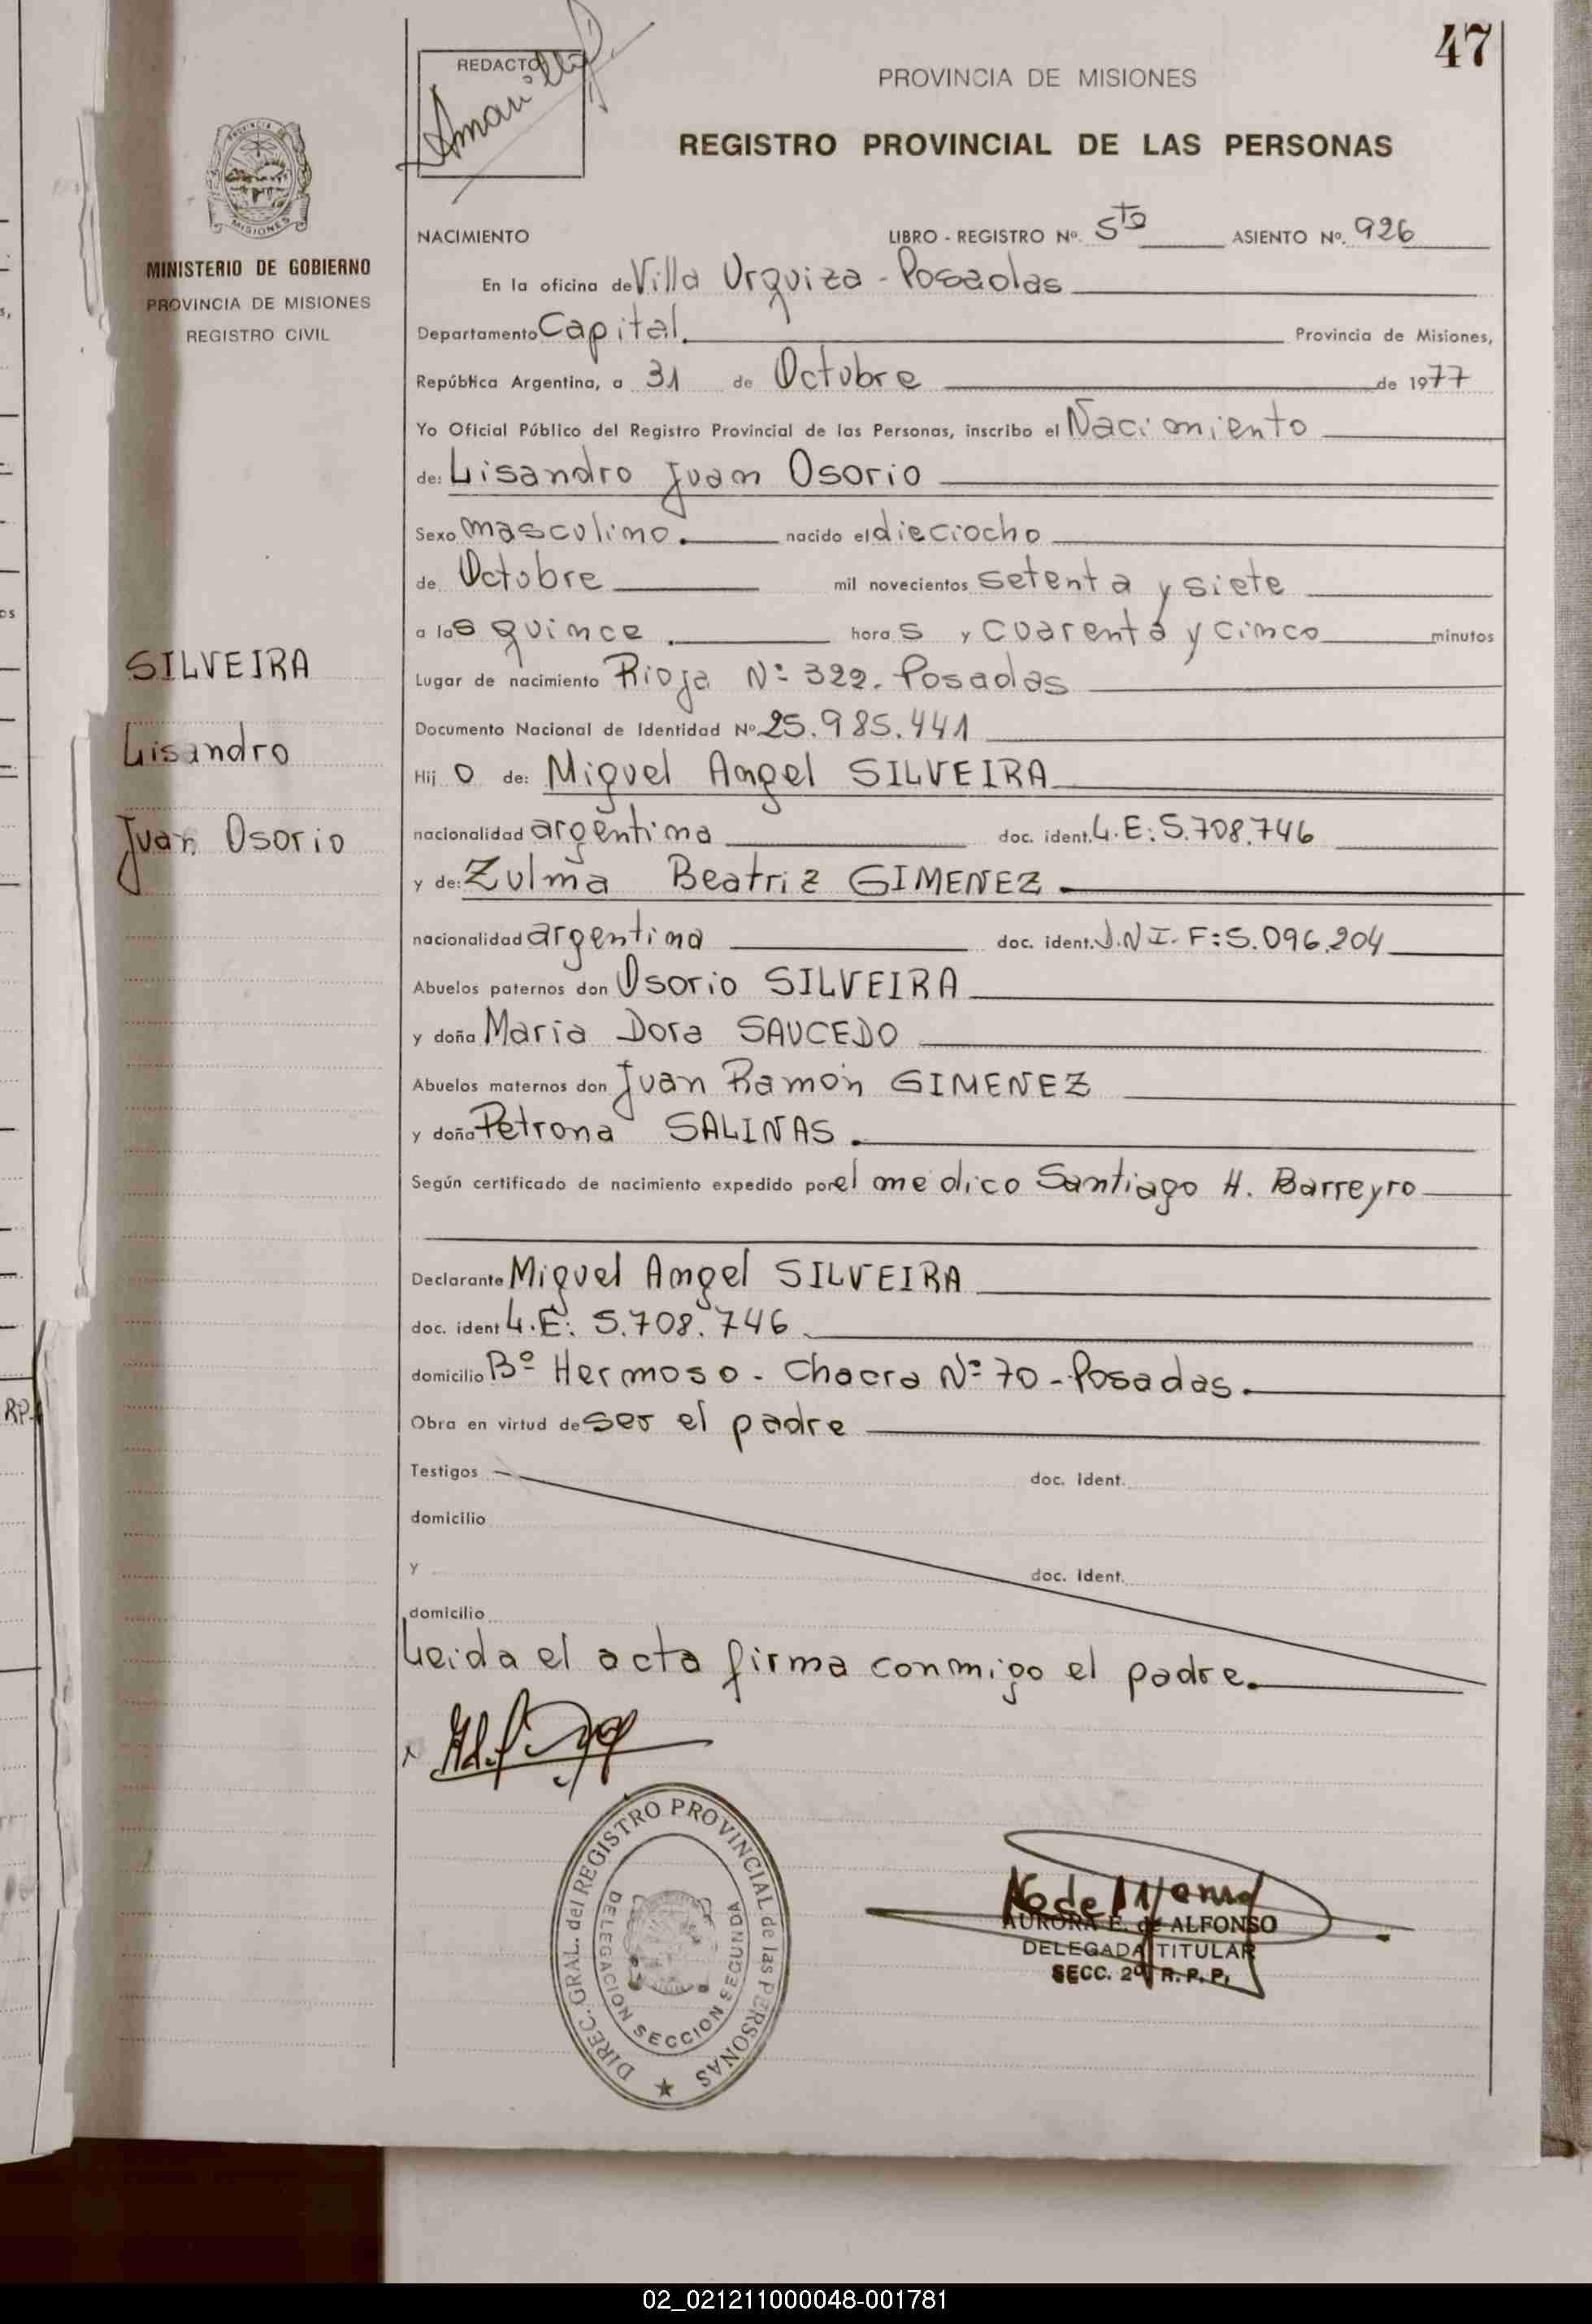 47
REDACTO
PROVINCIA DE MISIONES
REGISTRO PROVINCIAL DE LAS PERSONAS
MISIONES
MINISTERIO DE GOBIERNO
PROVINCIA DE MISIONES
REGISTRO CIVIL
NACIMIENTO LIBRO - REGISTRO Nº. 5to ASIENTO Nº. 926
En la oficina de Villa Urquiza - Posadas
Departamento Capital. Provincia de Misiones,
República Argentina, a 31 de Octubre de 1977
Yo Oficial Público del Registro Provincial de las Personas, inscribo el Nacimiento
de: Lisandro Juan Osorio
Sexo masculino. nacido el dieciocho
de Octubre mil novecientos setenta y siete
a las quince. horas y cuarenta y cinco minutos
SILVEIRA
Lisandro
Juan Osorio
Lugar de nacimiento Rioja Nº 322. Posadas
Documento Nacional de Identidad Nº 25.985.441
Hijo de: Miguel Angel SILVEIRA
nacionalidad argentina doc. ident. L.E: 5.708.746
y de: Zulma Beatriz GIMENEZ.
nacionalidad argentina doc. ident. D.N.I. F: 5.096.204
Abuelos paternos don Osorio SILVEIRA
y doña Maria Dora SAUCEDO
Abuelos maternos don Juan Ramón GIMENEZ
y doña Petrona SALINAS.
Según certificado de nacimiento expedido por el medico Santiago H. Barreyro
Declarante Miguel Angel SILVEIRA
doc. ident L.E: 5.708.746
domicilio Bº Hermoso - Chacra Nº 70 - Posadas.
Obra en virtud de ser el padre
Testigos doc. ident.
domicilio
y doc. ident.
domicilio
Leida el acta firma conmigo el padre.
DIREC. GRAL. del REGISTRO PROVINCIAL de las PERSONAS
DELEGACION SECCION SEGUNDA
AURORA E. de ALFONSO
DELEGADA TITULAR
SECC. 2º R. P. P.
RP.
02_021211000048-001781